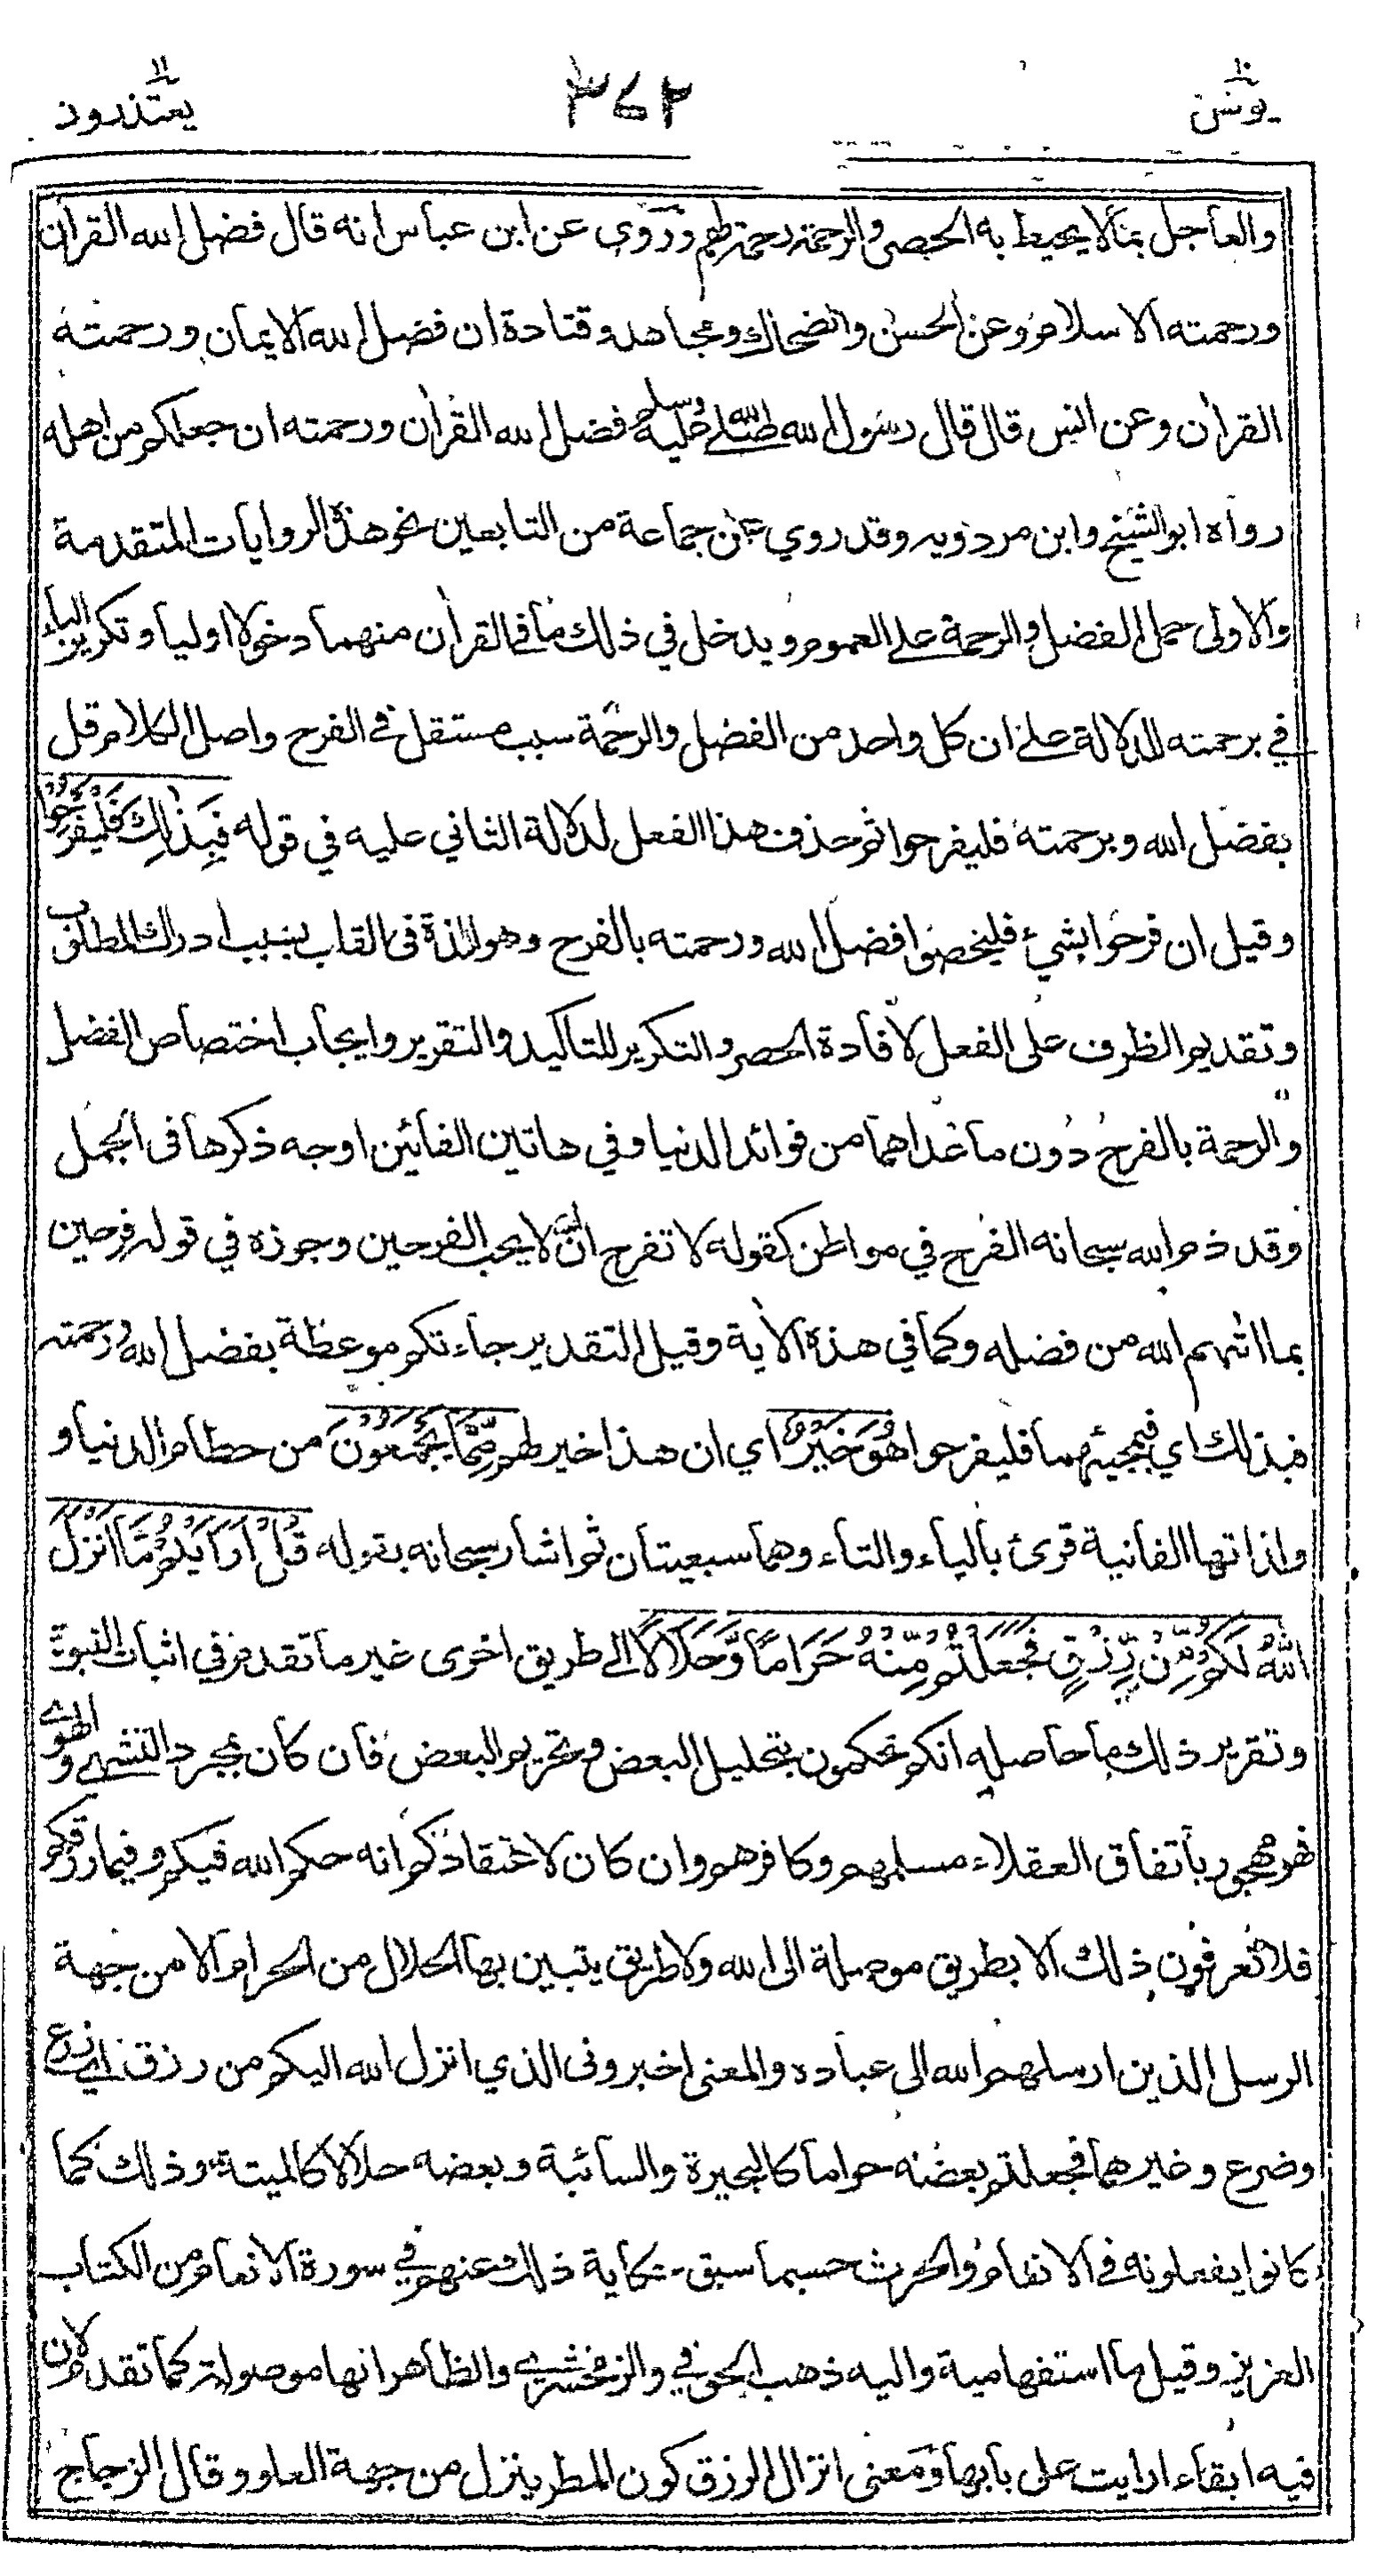 يونس ١٠
٣٤٢
يعتذرون ١١
والعاجل بما لا يحيط به الحصر والرحمة رحمته لهم وروي عن ابن عباس انه قال فضل الله القرأن
ورحمته الاسلام وعن الحسن والضحاك ومجاهد وقتادة ان فضل الله الايمان ورحمته
القرأن وعن انس قال قال رسول الله صلى الله عليه وسلم فضل الله القرأن ورحمته ان جعلكم من اهله
رواه ابو الشيخ وابن مردويه وقد روي عن جماعة من التابعين نحو هذه الروايات المتقدمة
والاولى حمل الفضل والرحمة على العموم ويدخل في ذلك ما في القرأن منهما دخولا اوليا وتكرير الباء
في برحمته للدلالة على ان كل واحد من الفضل والرحمة سبب مستقل في الفرح واصل الكلام قل
بفضل الله وبرحمته فليفرحوا ثم حذف هذا الفعل لدلالة الثاني عليه في قوله فَبِذٰلِكَ فَلْيَفْرَحُوا
وقيل ان فرحوا بشيء فليخصوا فضل الله ورحمته بالفرح وهو اللذة فى القلب بسبب ادراك المطلوب
وتقديم الظرف على الفعل لافادة الحصر والتكرير للتاكيد والتقرير وايجاب اختصاص الفضل
والرحمة بالفرح دون ما عداهما من فوائد الدنيا وفي هاتين الفائين اوجه ذكرها فى الجمل
وقد ذم الله سبحانه الفرح في مواطن كقوله لا تفرح ان الله لا يحب الفرحين وجوزه في قوله فرحين
بما اتٰهم الله من فضله وكما في هذه الأية وقيل التقدير جاءتكم موعظة بفضل الله ورحمته
فبذلك اي فبمجيئهما فليفرحوا هُوَ خَيْرٌ اي ان هذا خير لهم مِّمَّا يَجْمَعُوْنَ من حطام الدنيا و
لذاتها الفانية قرئ بالياء والتاء وهما سبعيتان ثم اشار سبحانه بقوله قُلْ اَرَاَيْتُمْ مَّا اَنْزَلَ
اللّٰهُ لَكُمْ مِّنْ رِّزْقٍ فَجَعَلْتُمْ مِّنْهُ حَرَامًا وَّحَلَالًا الى طريق اخرى غير ما تقدم في اثبات النبوة
وتقرير ذلك ما حاصله انكم تحكمون بتحليل البعض وتحريم البعض فان كان بمجرد التشهي والهوى
فهو مهجور باتفاق العقلاء مسلمهم وكافرهم وان كان لاعتقادكم انه حكم الله فيكم وفيما رزقكم
فلا تعرفون ذلك الا بطريق موصلة الى الله ولا طريق يتبين بها الحلال من الحرام الا من جهة
الرسل الذين ارسلهم الله الى عباده والمعنى اخبرونى الذي انزل الله اليكم من رزق اي زرع
وضرع وغيرهما فجعلتم بعضه حراما كالبحيرة والسائبة وبعضه حلالا كالميتة وذلك كما
كانوا يفعلونه في الانعام والحرث حسبما سبق حكاية ذلك عنهم في سورة الانعام من الكتاب
العزيز وقيل ما استفهامية واليه ذهب الحوفي والزمخشري والظاهر انها موصولة كما تقدم لان
فيه ابقاء ارايت على بابها ومعنى انزال الرزق كون المطر ينزل من جهة العلو وقال الزجاج